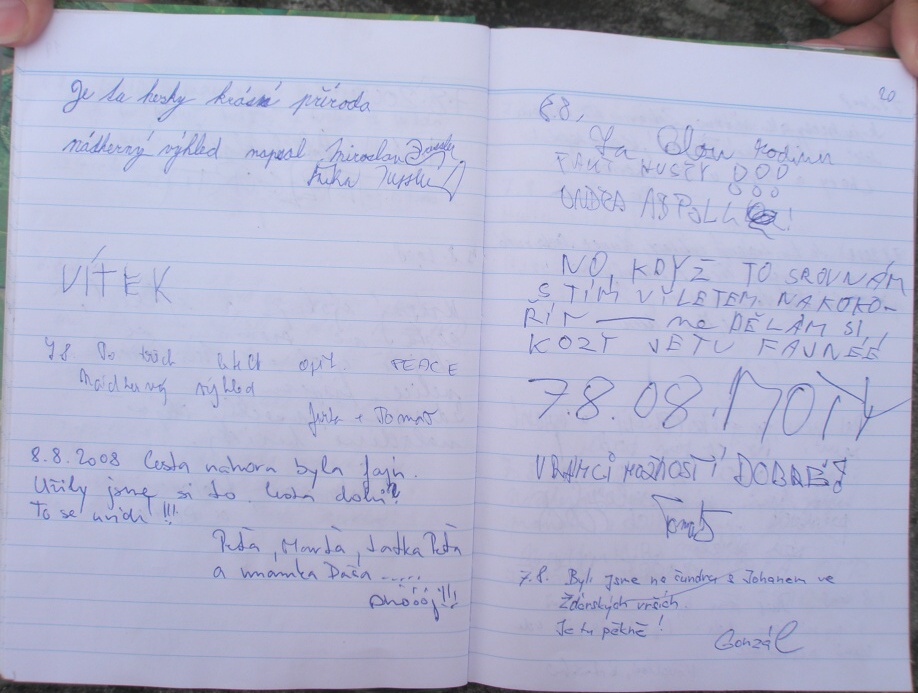 Je tu hesky krásná příroda
nádherný výhled napsal Miroslav
VÍTEK
7.8 Po třech letech opět.
Nádherný výhled
Jirka + Tomaš
8.8.2008 Cesta nahoru byla fajn.
Užily jsme si to. Cesta dolů?
To se uvidí !!!
Peťa, Marťa, Taťka Peťa
a mamka Dáša .....
Ahóóój!!!
20
8.8.
rodinu
FAKT HUSTÝ
ONDRA
NO, KDYŽ TO SROVNÁM
S TÍM VÝLETEM NA KOKO-
ŘÍN — ne DĚLÁM SI,
KOZY JE TU FAJNÉÉ
7.8.08.
V RÁMCI MOŽNOSTÍ DOBRÉ!
Tomáš
7.8. Byli jsme na čundru s Johanem ve
Žďárských vrších.
Je tu pěkně!
Gonzál